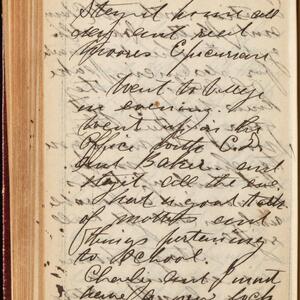 Stayed home all
day and read
Moores Epicurean
Went to village
in evening.
Went up in the
Office with C.
and Baker and
stayed all the eve.
Had a good talk
of matters and
things pertaining
to School.
Charley and I must
have